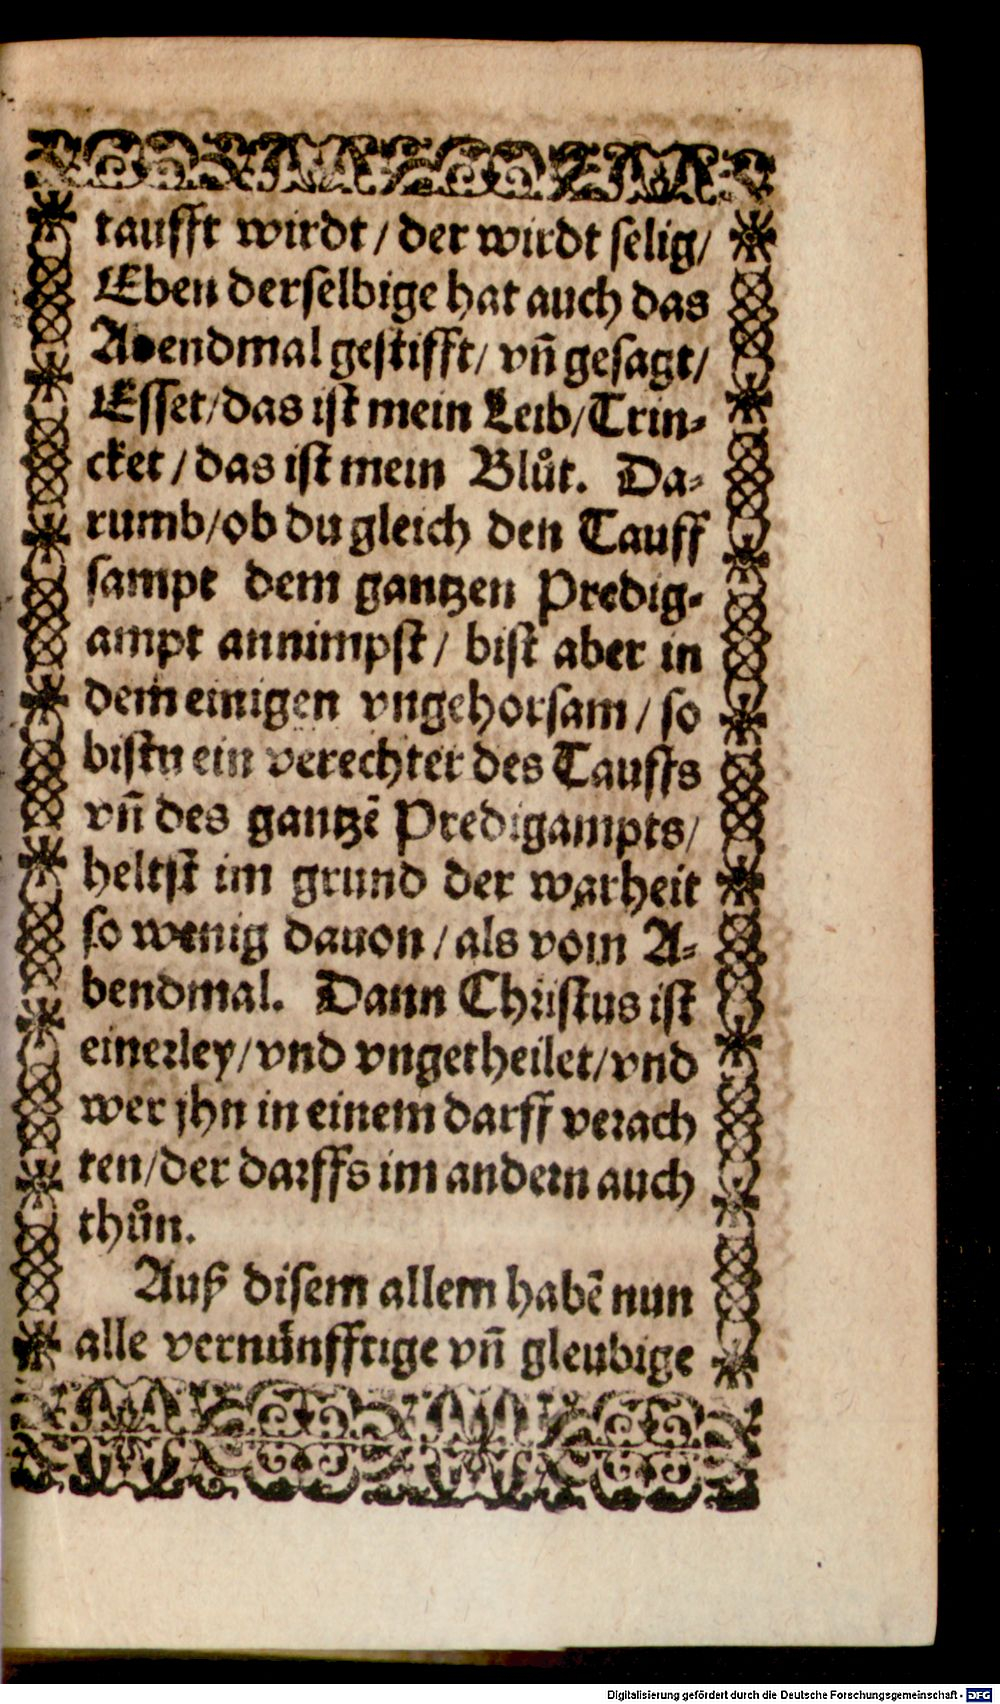 taufft wirdt / der wirdt selig /
Eben derselbige hat auch das
Abendmal gestifft / vñ gesagt /
Esset / das ist mein Leib / Trin⸗
cket / das ist mein Blůt. Da⸗
rumb / ob du gleich den Tauff
sampt dem gantzen Predig⸗
ampt annimpst / bist aber in
dem einigen vngehorsam / so
bistu ein verechter des Tauffs
vñ des gantzẽ Predigampts /
heltst im grund der warheit
so wenig dauon / als vom A⸗
bendmal. Dann Christus ist
einerley / vnd vngetheilet / vnd
wer jhn in einem darff verach
ten / der darffs im andern auch
thůn.
Auß disem allem habẽ nun
alle vernünfftige vñ gleubige
Digitalisierung gefördert durch die Deutsche Forschungsgemeinschaft - DFG